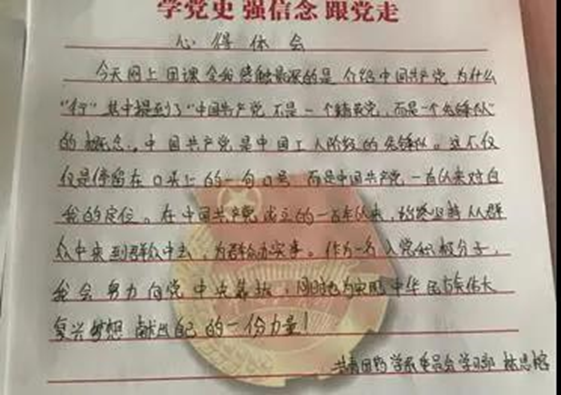 学党史 强信念 跟党走
心得体会
今天网上团课令我感触最深的是介绍中国共产党为什么
“行”其中提到了“中国共产党不是一个精英党,而是一个先锋队”
的概念。中国共产党是中国工人阶级的先锋队。这不仅
仅是停留在口头上的一句口号 而是中国共产党一直以来对自
我的定位。在中国共产党成立的一百年以来,始终坚持从群
众中来到群众中去,为群众办实事。作为一名入党积极分子,
我会努力向党中央靠拢,同时也为实现中华民族伟大
复兴梦想献出自己的一份力量!
共青团 学院委员会学习部 林思榕